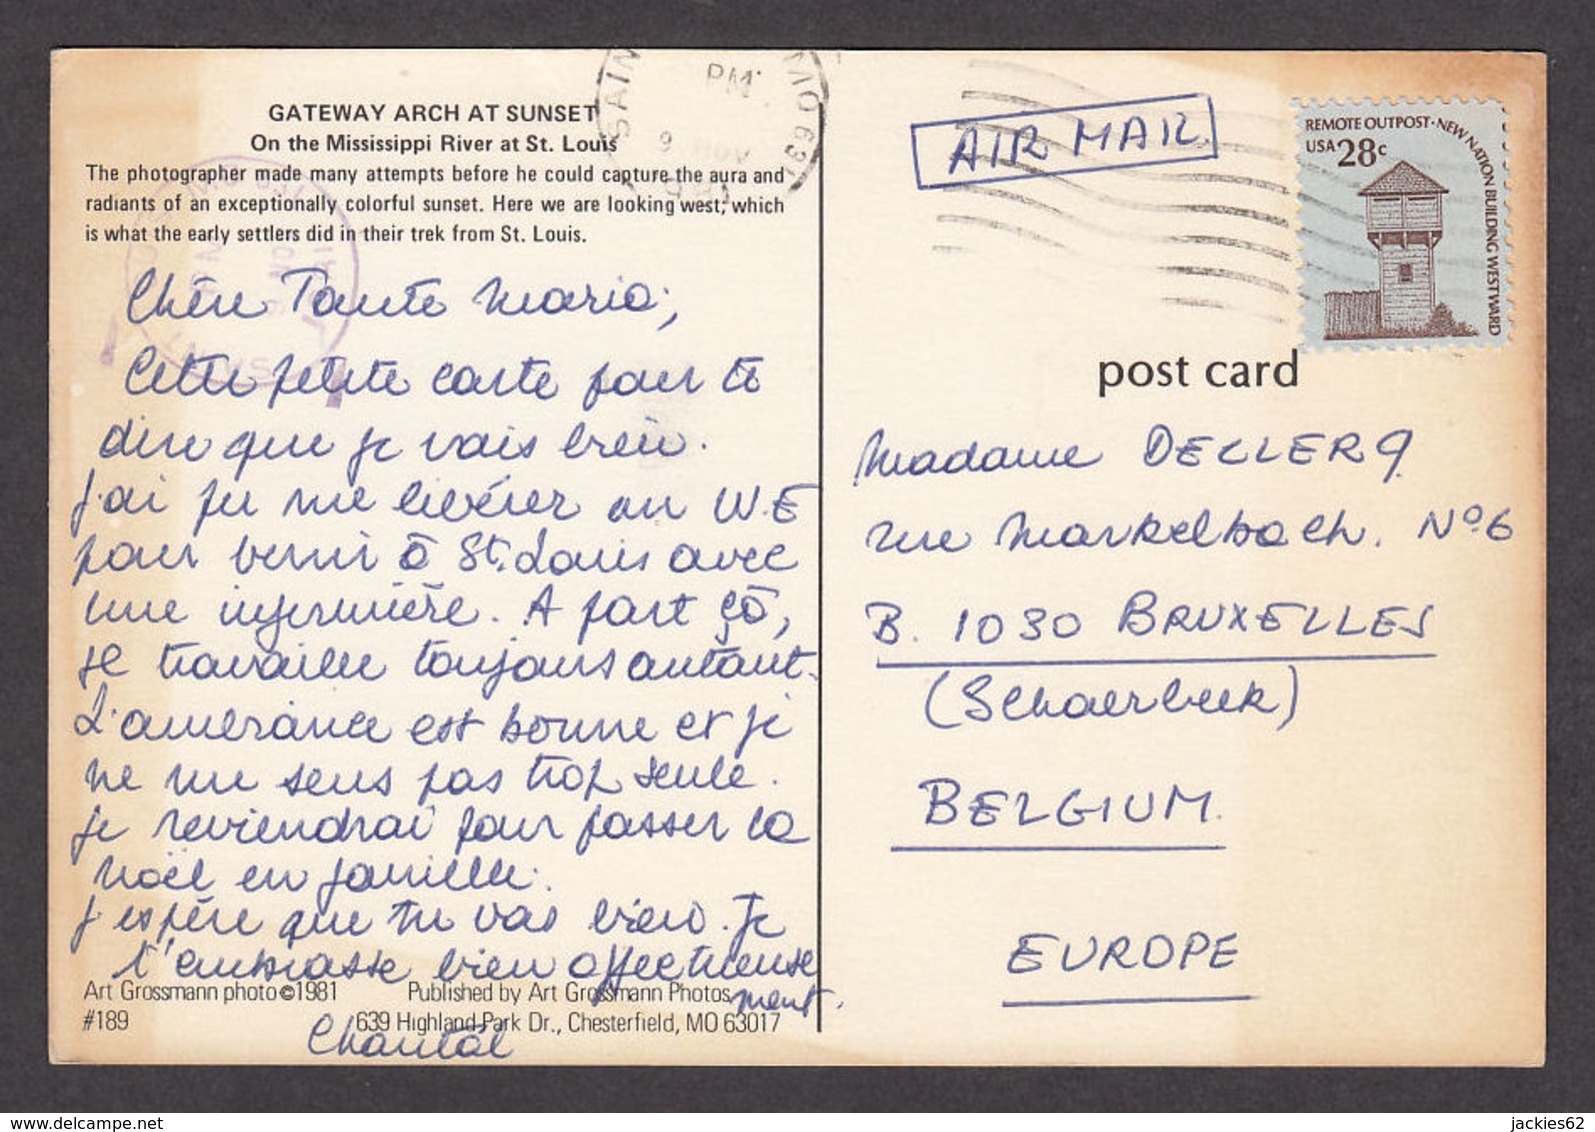 GATEWAY ARCH AT SUNSET
On the Mississippi River at St. Louis
The photographer made many attempts before he could capture the aura and
radiants of an exceptionally colorful sunset. Here we are looking west, which
is what the early settlers did in their trek from St. Louis.
Chère Tante Maria,
Cette petite carte pour te
dire que je vais bien.
J'ai pu me libérer un W.E
pour venir à St. Louis avec
une infirmière. A part çà,
je travaille toujours autant.
L'ambiance est bonne et je
ne me sens pas trop seule.
je reviendrai pour passer la
noël en famille.
J'espère que tu vas bien. Je
t'embrasse bien affectueuse
ment.
Chantal
Art Grossmann photo ©1981
Published by Art Grossmann Photos
#189
639 Highland Park Dr., Chesterfield, MO 63017
PM
9 NOV
MO 631
AIR MAIL
REMOTE OUTPOST · NEW NATION BUILDING WESTWARD
USA 28c
post card
Madame DECLERQ
rue Markelbach. No 6
B. 1030 BRUXELLES
(Schaerbeek)
BELGIUM.
EUROPE
jackies62